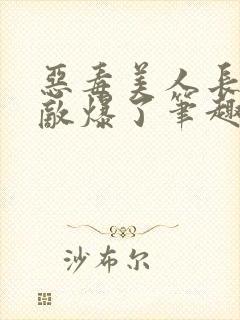 惡毒美人長
敵爆了筆趣
沙布尔